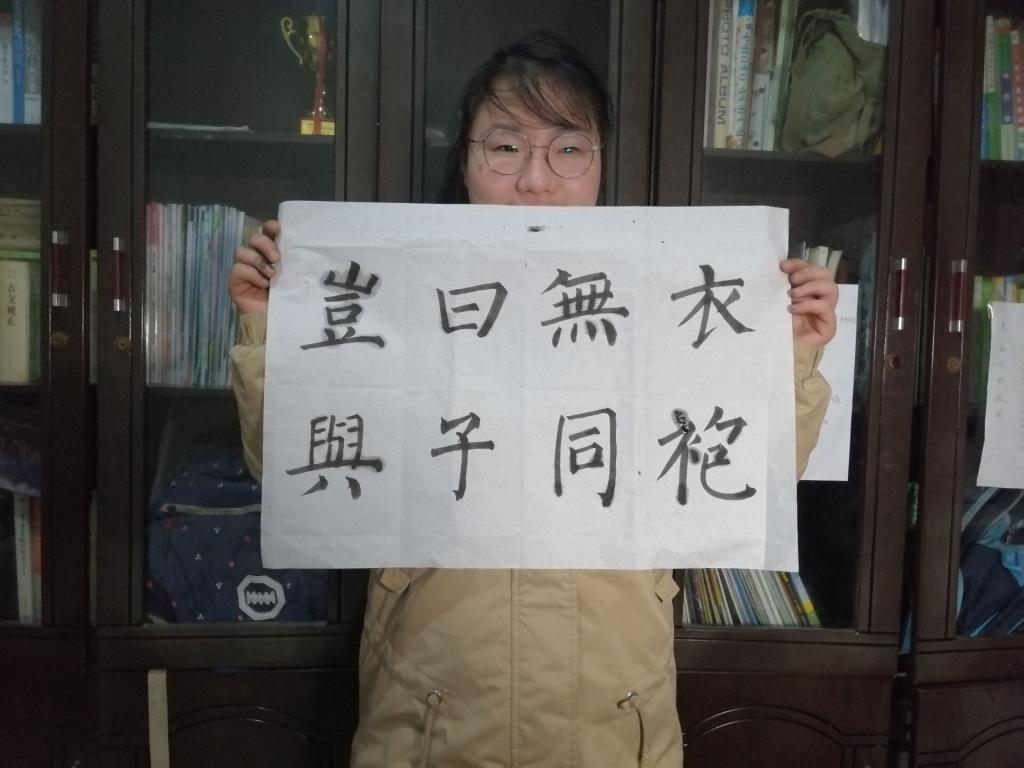 豈曰無衣
與子同袍
PHOTO ALBUM
古文觀止